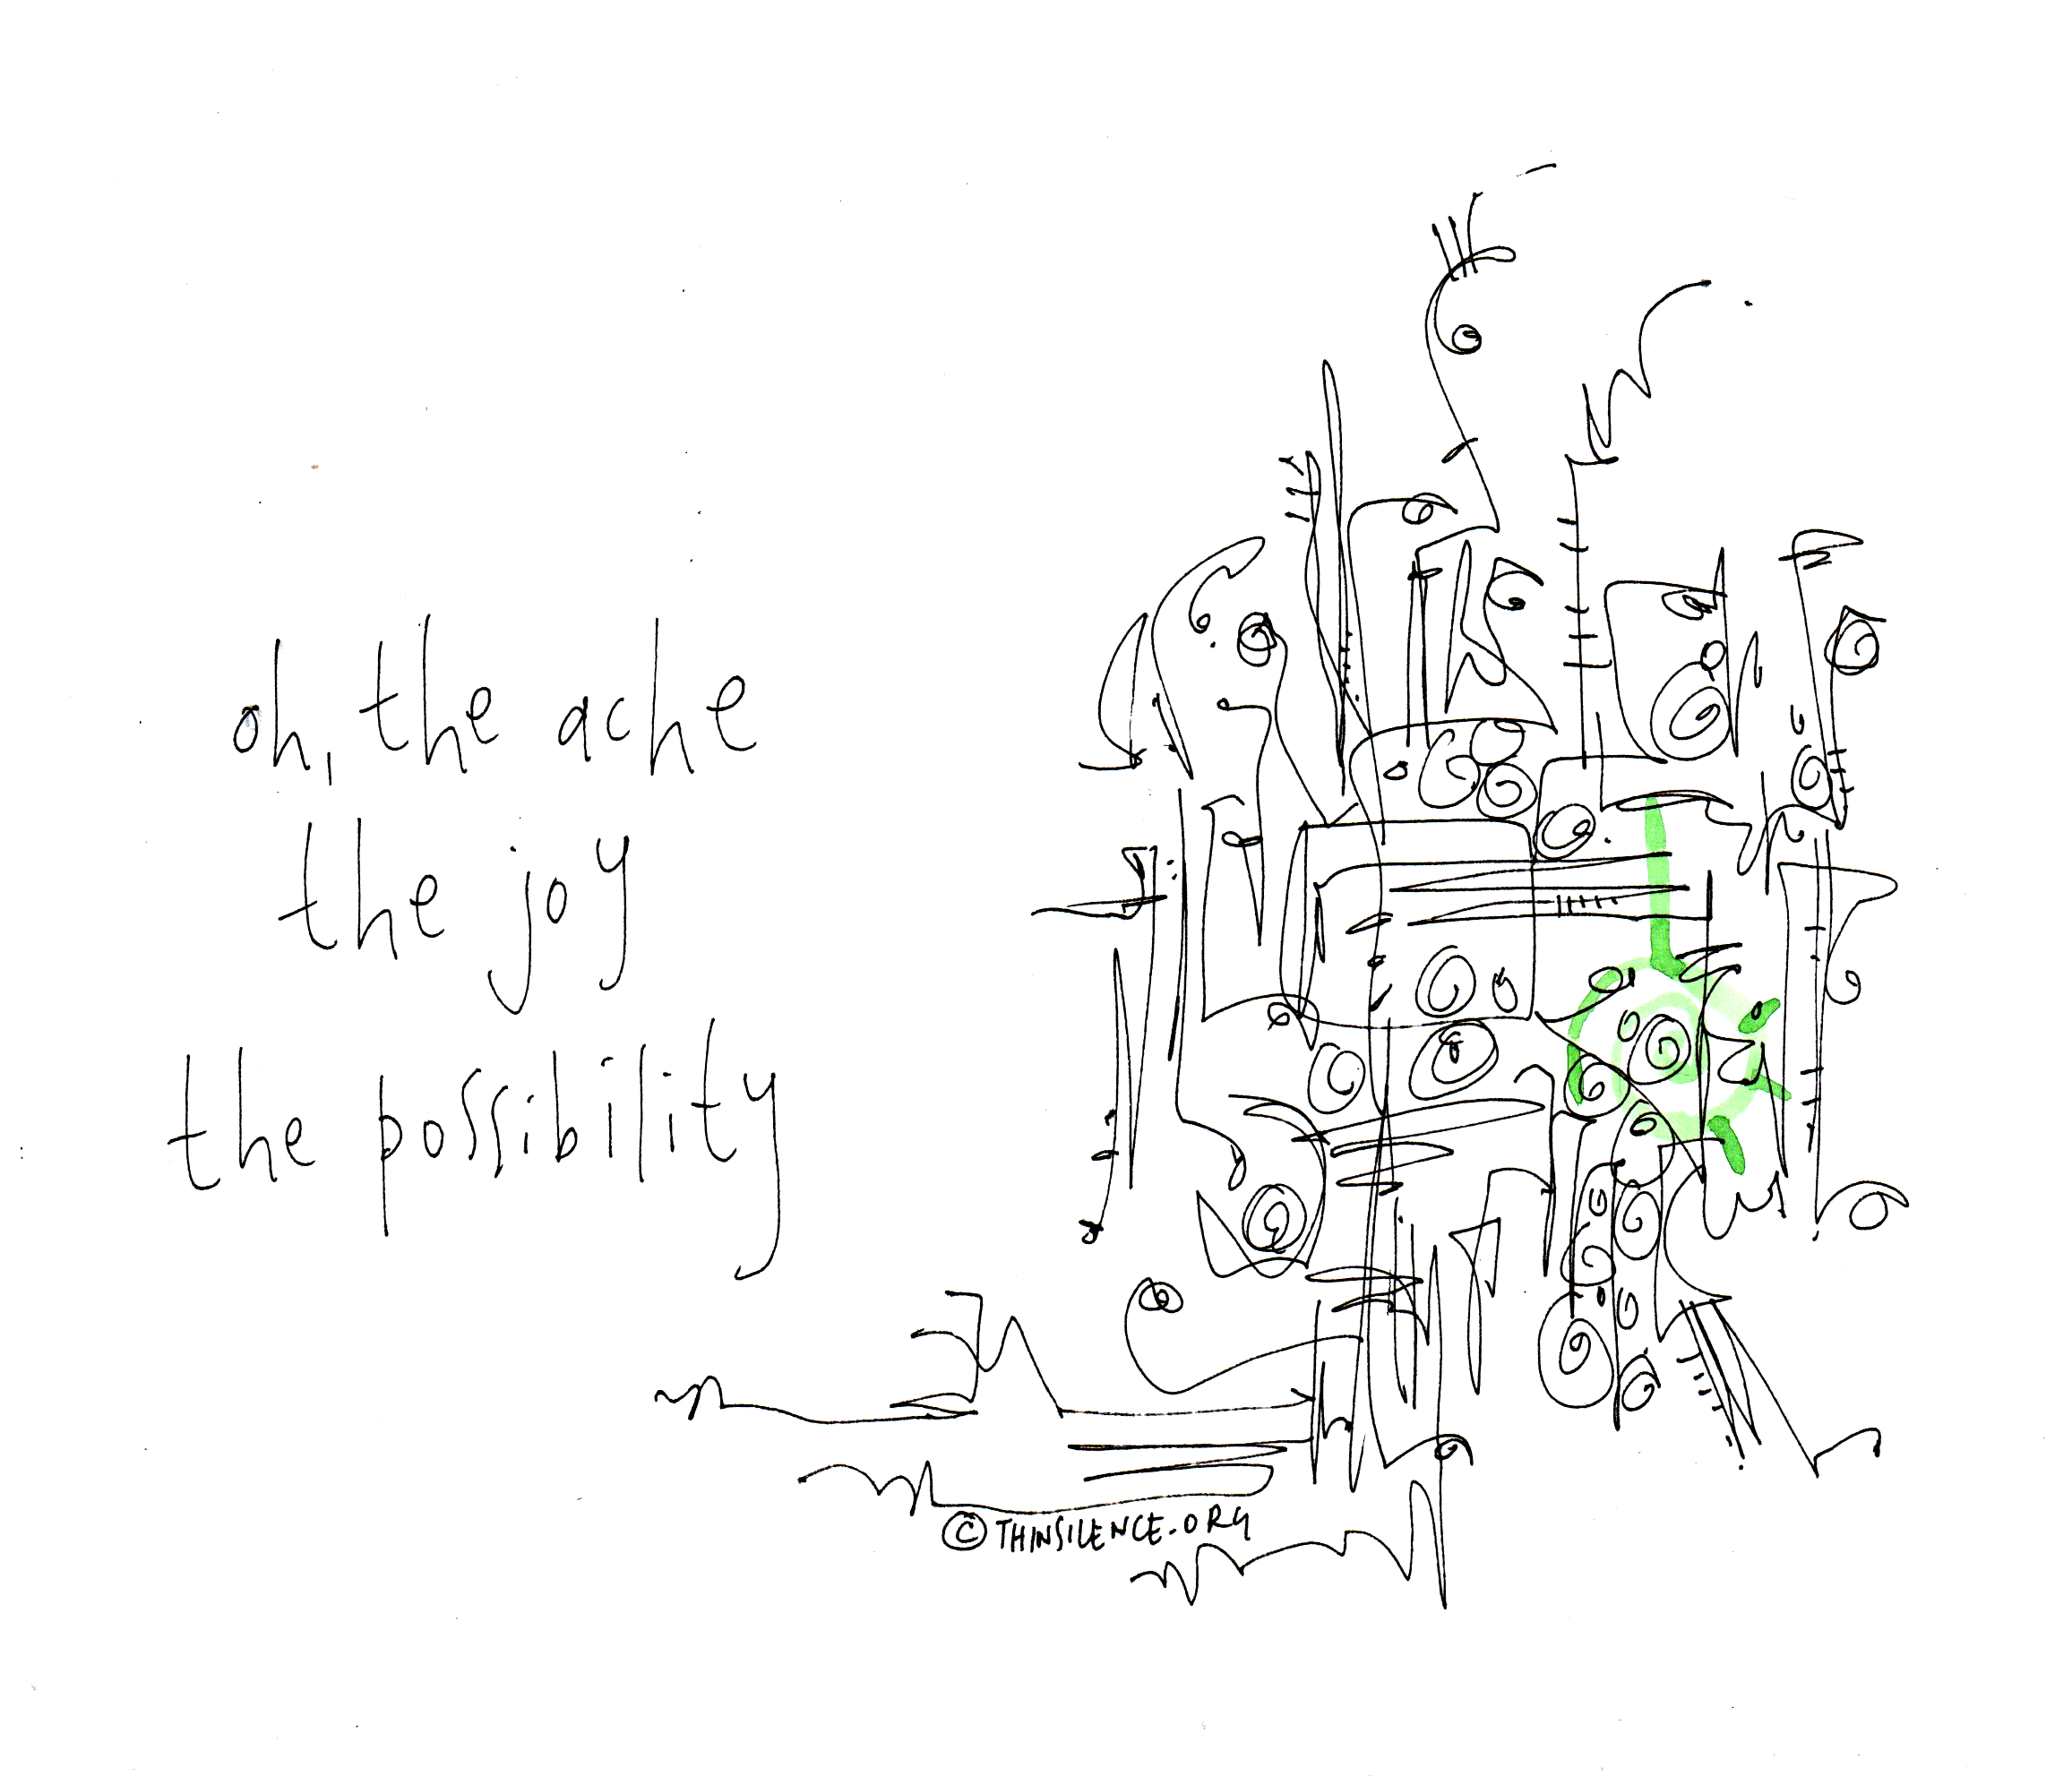 oh, the ache
the joy
the possibility
© THINSILENCE.ORG